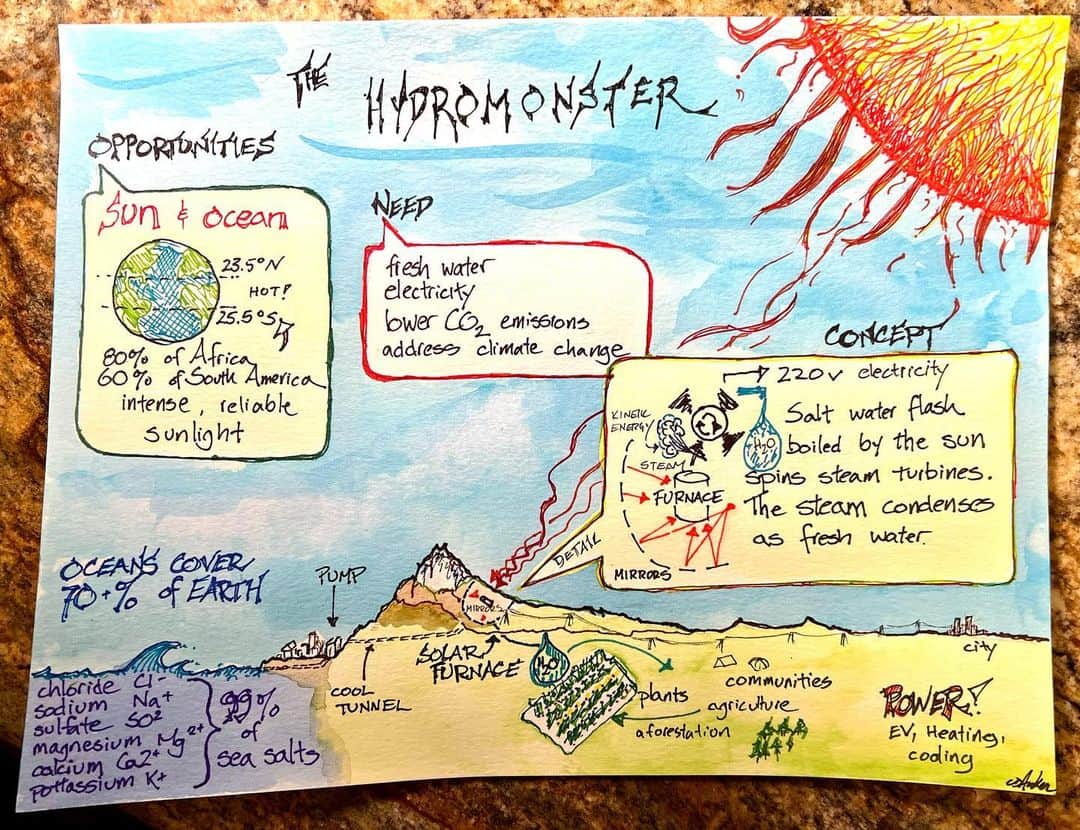 THE HYDROMONSTER
OPPORTUNITIES
Sun & ocean
23.5°N
HOT!
25.5°S
80% of Africa
60% of South America
intense, reliable
sunlight
NEED
fresh water
electricity
lower CO2 emissions
address climate change
CONCEPT
220v electricity
KINETIC
ENERGY
STEAM
FURNACE
H2O
MIRRORS
Salt water flash
boiled by the sun
spins steam turbines.
The steam condenses
as fresh water.
DETAIL
OCEANS COVER
70+% of EARTH
PUMP
MIRRORS
SOLAR
FURNACE
COOL
TUNNEL
H2O
plants
communities
agricuture
aforestation
city
POWER!
EV, Heating,
coding
chloride Cl-
sodium Na+
sulfate SO2
magnesium Mg2+
calcium Ca2+
pottassium K+
99%
of
sea salts